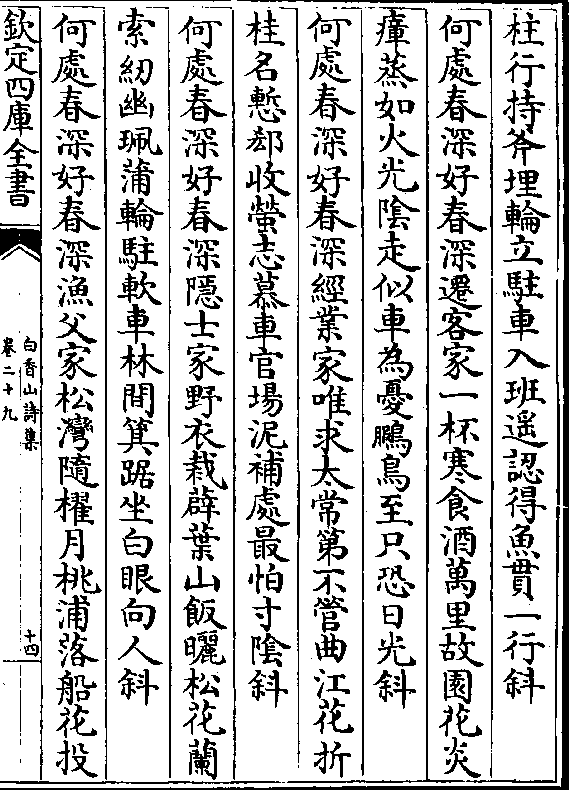 柱行持斧埋輪立駐車入班遥認得魚貫一行斜
何處春深好春深遷客家一杯寒食酒萬里故園花炎
瘴蒸如火光陰走似車為憂鵩鳥至只恐日光斜
何處春深好春深經業家唯求太常第不管曲江花折
桂名慙郄收螢志慕車官場泥補處最怕寸陰斜
何處春深好春深隱士家野衣裁薜葉山飯曬松花蘭
索紉幽珮蒲輪駐軟車林間箕踞坐白眼向人斜
何處春深好春深漁父家松灣隨櫂月桃浦落船花投
欽定四庫全書
白香山詩集
卷二十九
十四